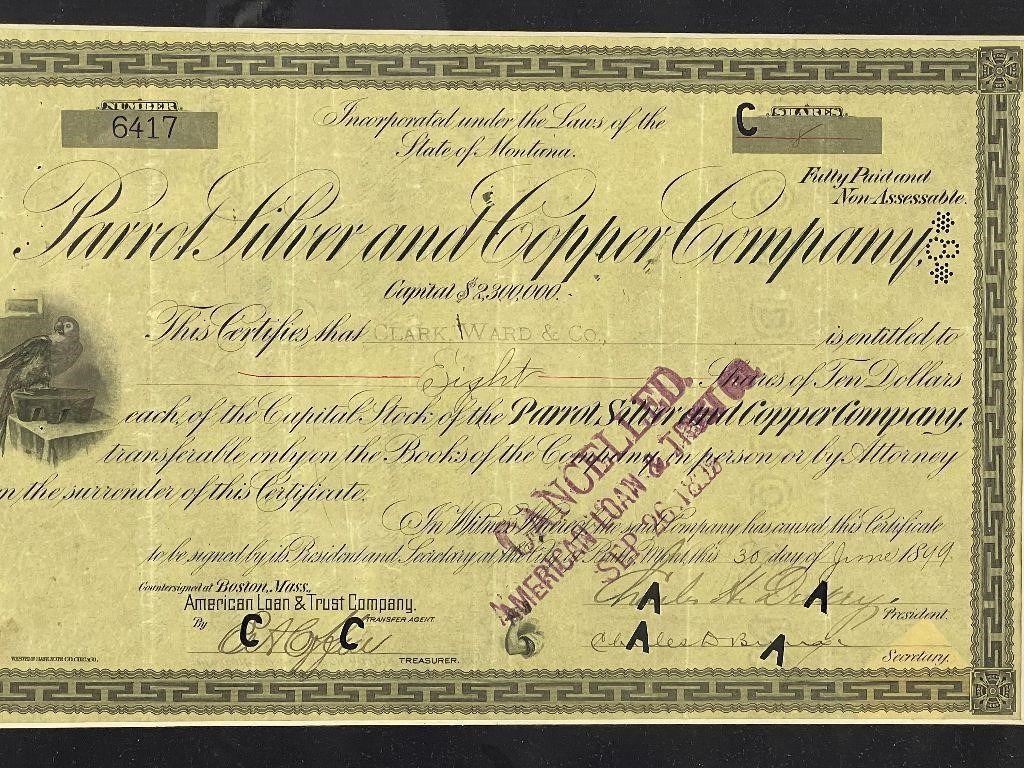 NUMBER
6417
Incorporated under the Laws of the
State of Montana.
SHARES
8
Fully Paid and
Non-Assessable.
Parrot Silver and Copper Company,
Capital $2,300,000.
This Certifies that CLARK, WARD & CO. is entitled to
Eight Shares of Ten Dollars
each, of the Capital Stock of the Parrot Silver and Copper Company,
transferable only on the Books of the Company in person or by Attorney
on the surrender of this Certificate.
In Witness Whereof the said Company has caused this Certificate
to be signed by its President and Secretary at this 30 day of June 1899
CANCELLED.
AMERICAN LOAN & TRUST CO
SEP 26
Countersigned at Boston, Mass.,
American Loan & Trust Company.
TRANSFER AGENT.
By
TREASURER.
Charles H.
President.
Charles D
Secretary.
C
C C
A A
A A